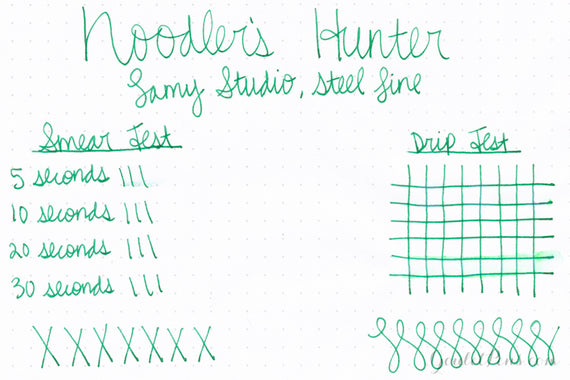 Noodler's Hunter
Lamy Studio, steel fine
Smear Test
Drip Test
5 seconds
10 seconds
20 seconds
30 seconds
X X X X X X X